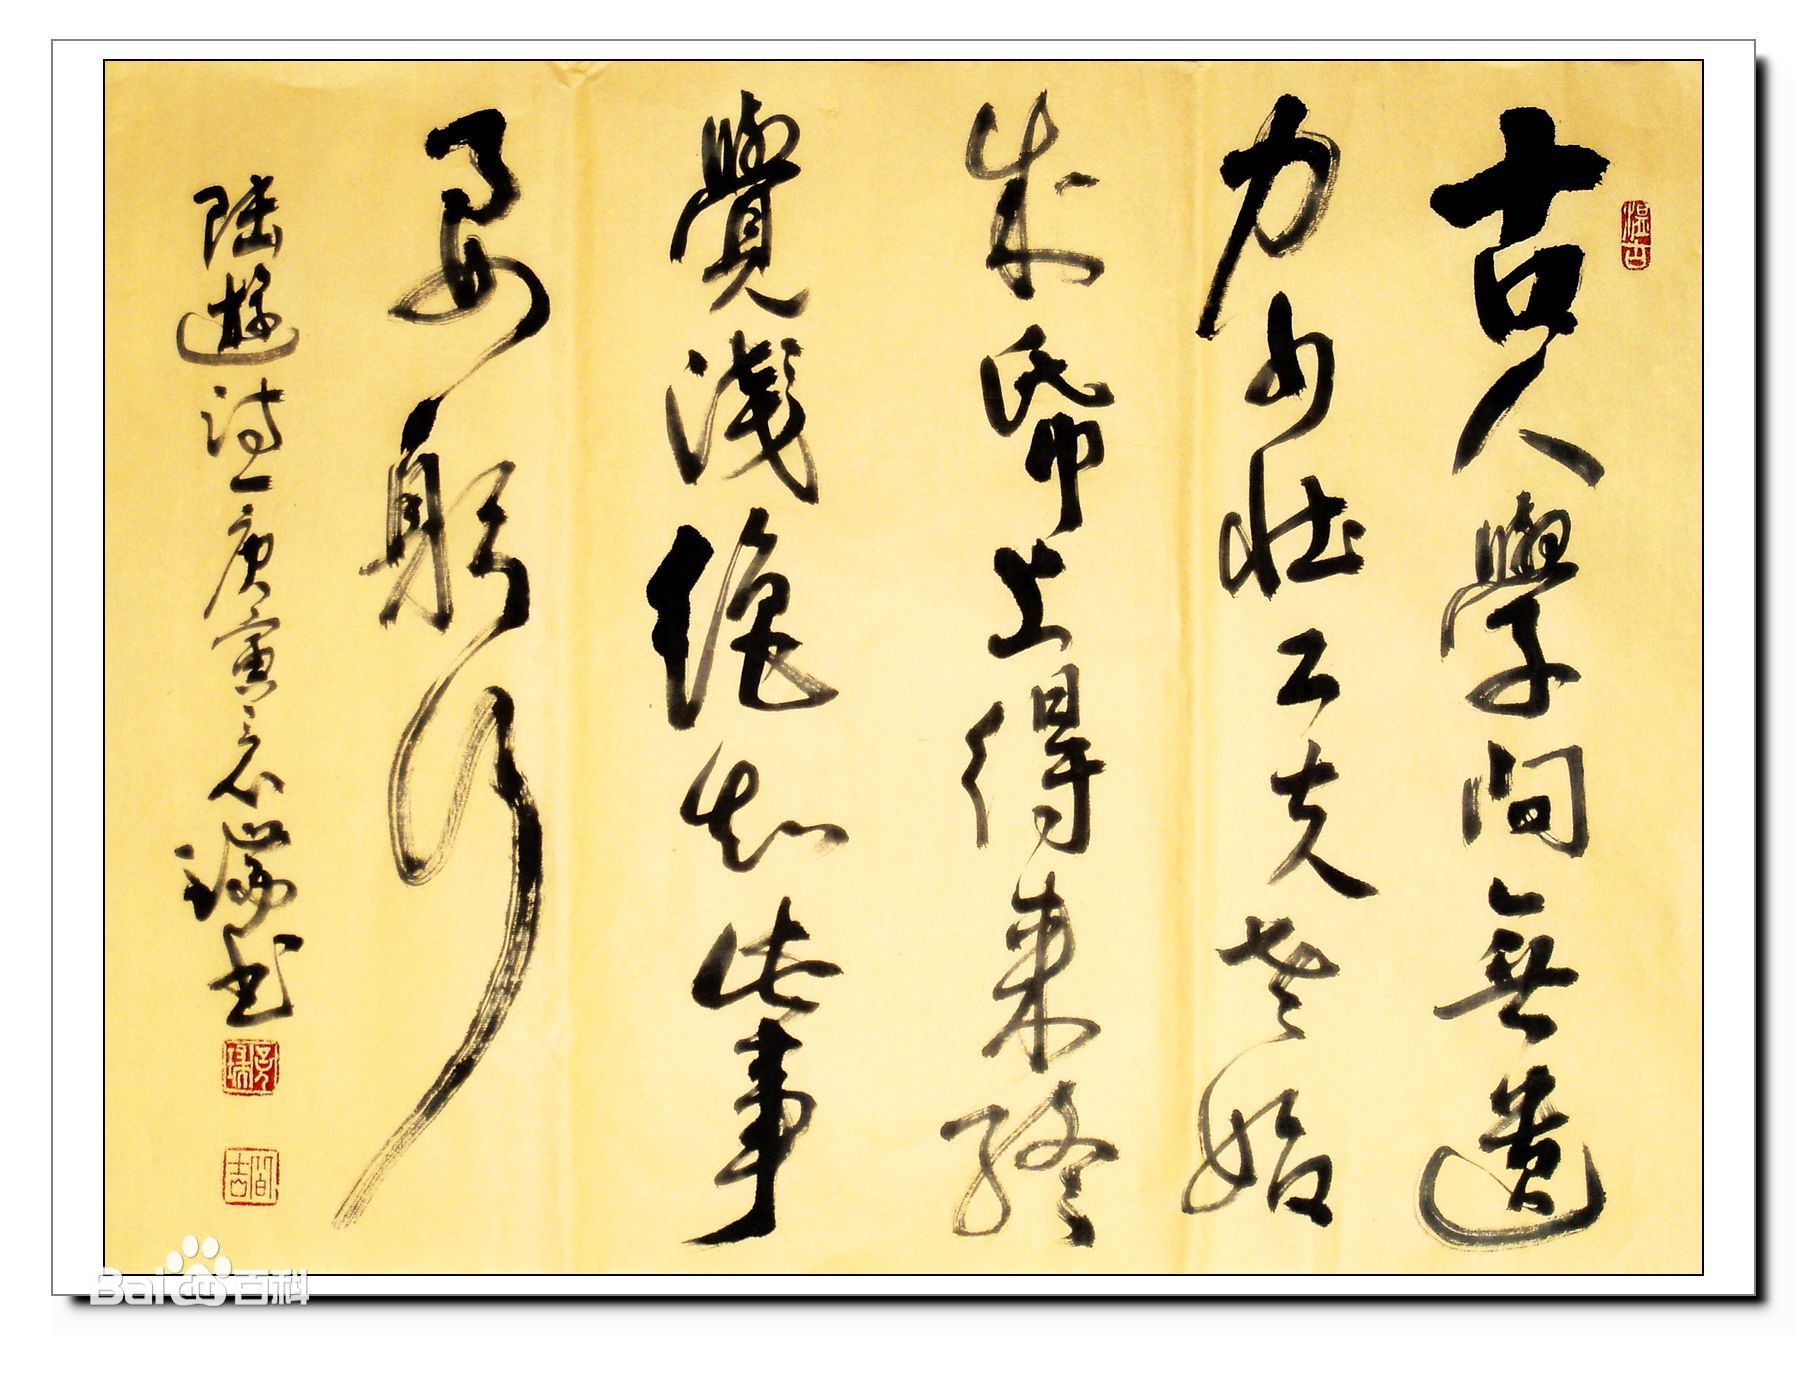 古人學問無遺
力少壯工夫老始
成帋上得来終
覺淺絕知此事
要躬行
陸遊詩一庚寅瑞书
Bai百科